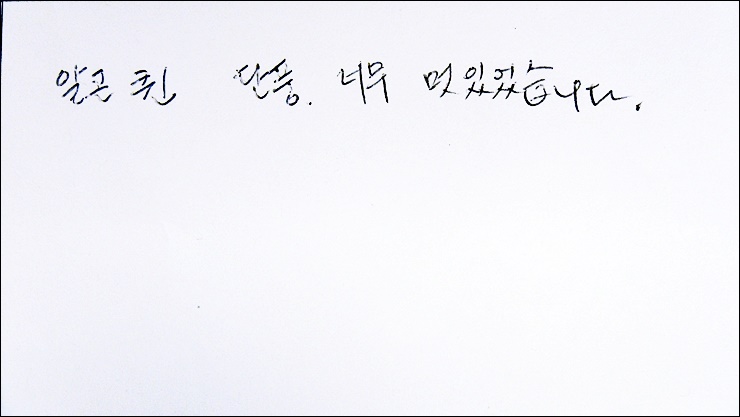 알근 퀸 단풍. 너무 멋있었습니다.